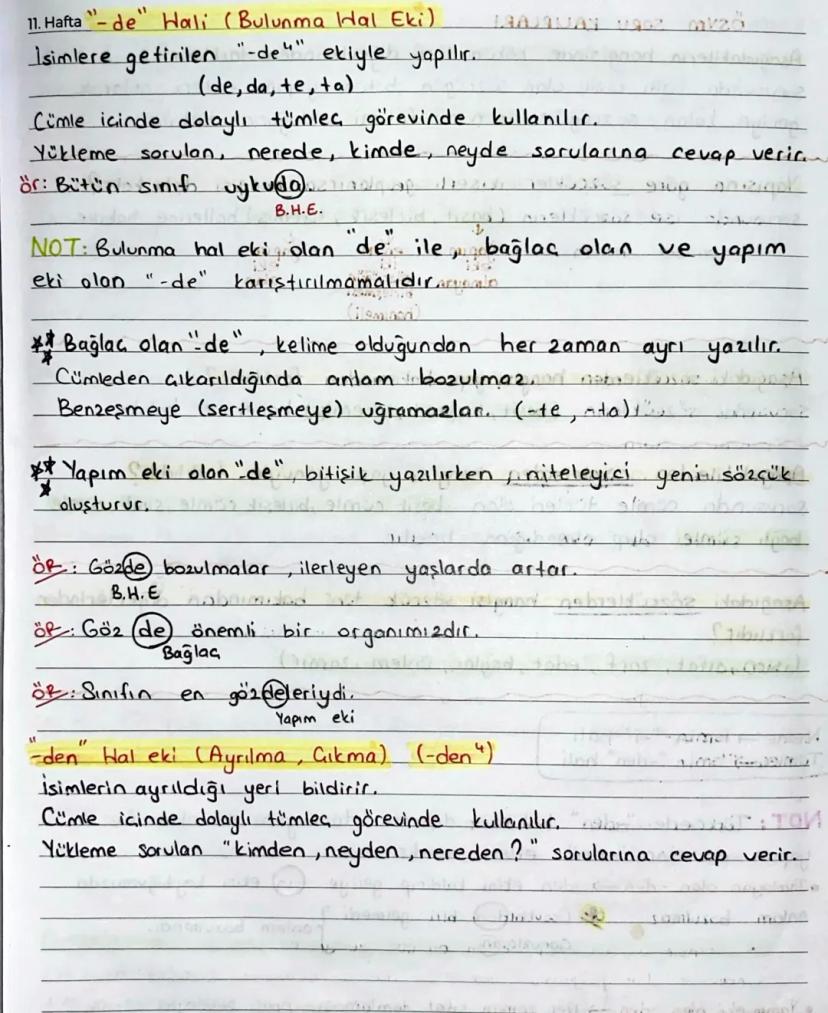 11. Hafta "-de" Hali (Bulunma Hal Eki)
İsimlere getirilen "-de⁴" ekiyle yapılır.
(de, da, te, ta)
Cümle içinde dolaylı tümleç görevinde kullanılır.
Yükleme sorulan, nerede, kimde, neyde sorularına cevap verir.
ör: Bütün sınıf uykuda.
B.H.E.
NOT: Bulunma hal eki olan "de" ile, bağlaç olan ve yapım
eki olan "-de" karıştırılmamalıdır.
** Bağlaç olan "-de", kelime olduğundan her zaman ayrı yazılır.
*
Cümleden çıkarıldığında anlam bozulmaz.
Benzeşmeye (sertleşmeye) uğramazlar. (-te, -ta)
** Yapım eki olan "de", bitişik yazılırken, niteleyici yeni sözcük
*
oluşturur.
ÖR: Gözde bozulmalar, ilerleyen yaşlarda artar.
B.H.E
ÖR: Göz de önemli bir organımızdır.
Bağlaç
ÖR: Sınıfın en gözdeleriydi.
Yapım eki
"-den" Hal eki (Ayrılma, Çıkma) (-den⁴)
İsimlerin ayrıldığı yeri bildirir.
Cümle içinde dolaylı tümleç görevinde kullanılır.
Yükleme sorulan "kimden, neyden, nereden?" sorularına cevap verir.